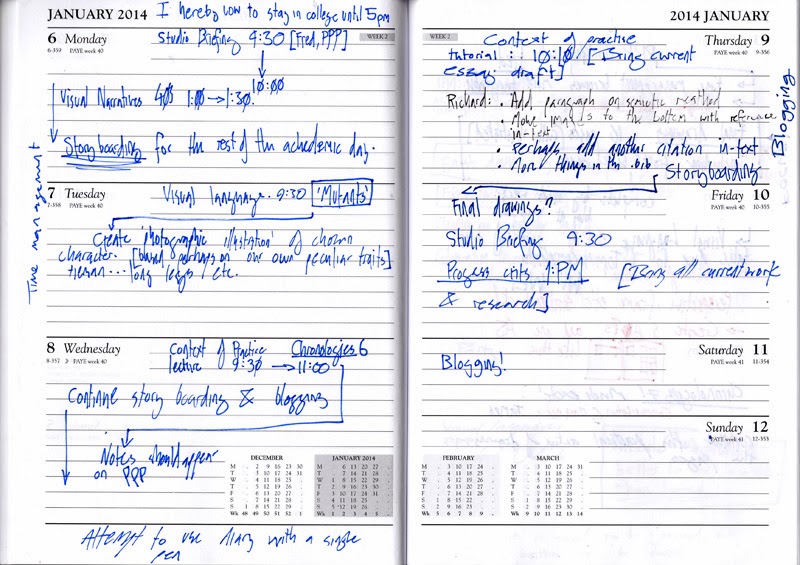 JANUARY 2014
I hereby vow to stay in college until 5pm
6 Monday
6-359 PAYE week 40
WEEK 2
Studio Briefing 9:30 [Fred, PPP]
10:00
Visual Narratives 1:00 → 1:30.
Storyboarding for the rest of the achedemic day.
Time management
7 Tuesday
7-358 PAYE week 40
Visual language. 9:30 'Mutants'
Create 'photographic illustration' of chosen
character. [based perhaps on one own peculiar traits]
long legs etc.
8 Wednesday
8-357 PAYE week 40
Context of Practice Chronologies 6
lecture 9:30 → 11:00
Continue story boarding & blogging
Notes should appear
on PPP
DECEMBER
M - 2 9 16 23 30
T - 3 10 17 24 31
W - 4 11 18 25 -
T - 5 12 19 26 -
F - 6 13 20 27 -
S - 7 14 21 28 -
S 1 8 15 22 29 -
Wk 48 49 50 51 52 1
JANUARY 2014
M - 6 13 20 27
T - 7 14 21 28
W 1 8 15 22 29
T 2 9 16 23 30
F 3 10 17 24 31
S 4 11 18 25 -
S 5 12 19 26 -
Wk 1 2 3 4 5
Attempt to use diary with a single
pen
2014 JANUARY
WEEK 2
Thursday 9
9-356
PAYE week 40
Context of practice
tutorial : 10:10 [Bring current
essay draft]
Richard: • Add paragraph on semiotic method
• Move images to the bottom with reference
in-text
• Perhaps add another citation in-text
• More things in the .bib.
Storyboarding
Blogging
Friday 10
PAYE week 40 10-355
Final drawings?
Studio Briefing 9:30
Progress crits 1:PM [Bring all current work
& research]
Saturday 11
PAYE week 41 11-354
Blogging!
Sunday 12
PAYE week 41 12-353
FEBRUARY
M - 3 10 17 24
T - 4 11 18 25
W - 5 12 19 26
T - 6 13 20 27
F - 7 14 21 28
S 1 8 15 22 -
S 2 9 16 23 -
Wk 5 6 7 8 9
MARCH
M - 3 10 17 24 31
T - 4 11 18 25 -
W - 5 12 19 26 -
T - 6 13 20 27 -
F - 7 14 21 28 -
S 1 8 15 22 29 -
S 2 9 16 23 30 -
Wk 9 10 11 12 13 14